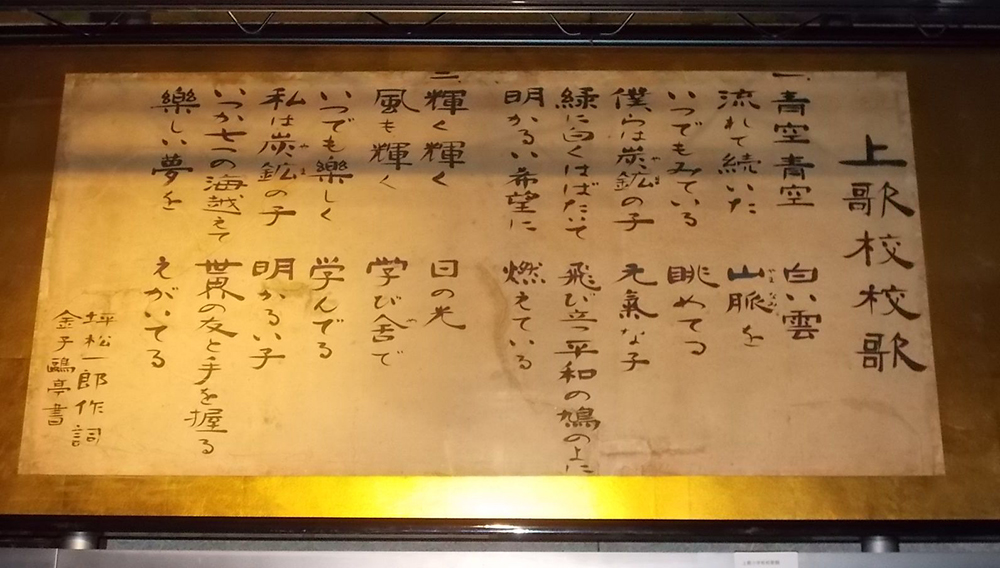 上歌校校歌
一、青空青空 白い雲
流れて続いた 山脈を
いつでもみている 眺めてる
僕らは炭鉱の子 元氣な子
緑に白くはばたいて 飛び立つ平和の鳩のよに
明かるい希望に 燃えている
二、輝く輝く 日の光
風も輝く 学び舎で
いつでも樂しく 学んでる
私は炭鉱の子 明かるい子
いつか七つの海越えて 世界の友と手を握る
樂しい夢を えがいてる
坪松一郎作詞
金子鷗亭書